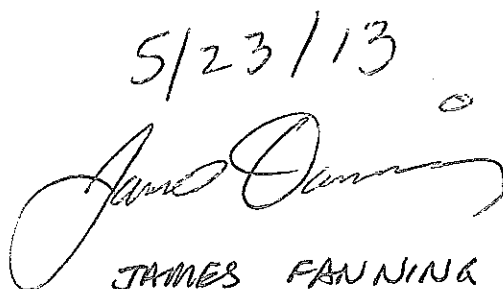 5/23/13
James Fanning
JAMES FANNING